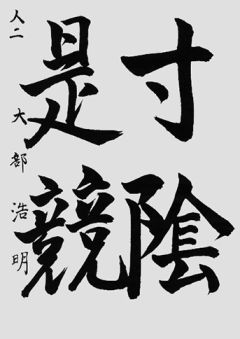 寸陰
是競
人二 大部浩明